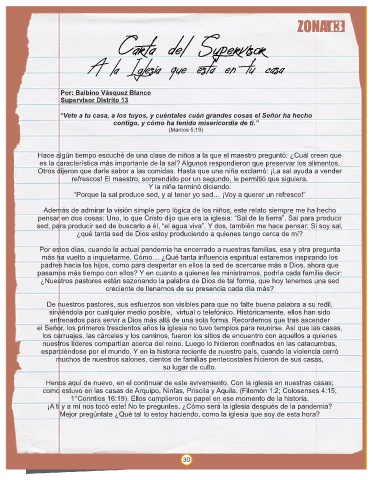 ZONA 13
Carta del Supervisor
A la Iglesia que está en tu casa
Por: Balbino Vásquez Blanco
Supervisor Distrito 13
“Vete a tu casa, a los tuyos, y cuéntales cuán grandes cosas el Señor ha hecho
contigo, y cómo ha tenido misericordia de ti.”
(Marcos 5:19)
Hace algún tiempo escuché de una clase de niños a la que el maestro preguntó: ¿Cuál creen que
es la característica más importante de la sal? Algunos respondieron que preservar los alimentos.
Otros dijeron que darle sabor a las comidas. Hasta que una niña exclamó: ¡La sal ayuda a vender
refrescos! El maestro, sorprendido por un segundo, le permitió que siguiera.
Y la niña terminó diciendo:
“Porque la sal produce sed, y al tener yo sed… ¡Voy a querer un refresco!”
Además de admirar la visión simple pero lógica de los niños, este relato siempre me ha hecho
pensar en dos cosas: Uno, lo que Cristo dijo que era la iglesia: “Sal de la tierra”. Sal para producir
sed; para producir sed de buscarlo a él, “el agua viva”. Y dos, también me hace pensar: Si soy sal,
¿qué tanta sed de Dios estoy produciendo a quienes tengo cerca de mí?
Por estos días, cuando la actual pandemia ha encerrado a nuestras familias, esa y otra pregunta
más ha vuelto a inquietarme. Cómo… ¿Qué tanta influencia espiritual estaremos inspirando los
padres hacia los hijos, como para despertar en ellos la sed de acercarse más a Dios, ahora que
pasamos más tiempo con ellos? Y en cuanto a quienes les ministramos, podría cada familia decir:
¿Nuestros pastores están sazonando la palabra de Dios de tal forma, que hoy tenemos una sed
creciente de llenarnos de su presencia cada día más?
De nuestros pastores, sus esfuerzos son visibles para que no falte buena palabra a su redil,
sirviéndola por cualquier medio posible, virtual o telefónico. Históricamente, ellos han sido
entrenados para servir a Dios más allá de una sola forma. Recordemos que tras ascender
el Señor, los primeros trescientos años la iglesia no tuvo templos para reunirse. Así que las casas,
los carruajes, las cárceles y los caminos, fueron los sitios de encuentro con aquellos a quienes
nuestros líderes compartían acerca del reino. Luego lo hicieron confinados en las catacumbas,
esparciéndose por el mundo. Y en la historia reciente de nuestro país, cuando la violencia cerró
muchos de nuestros salones, cientos de familias pentecostales hicieron de sus casas,
su lugar de culto.
Henos aquí de nuevo, en el continuar de este avivamiento. Con la iglesia en nuestras casas;
como estuvo en las casas de Arquipo, Ninfas, Priscila y Aquila. (Filemón 1:2; Colosenses 4:15;
1°Corintios 16:19). Ellos cumplieron su papel en ese momento de la historia.
¡A ti y a mí nos tocó este! No te preguntes, ¿Cómo será la iglesia después de la pandemia?
Mejor pregúntate ¿Qué tal lo estoy haciendo, como la iglesia que soy de esta hora?
30